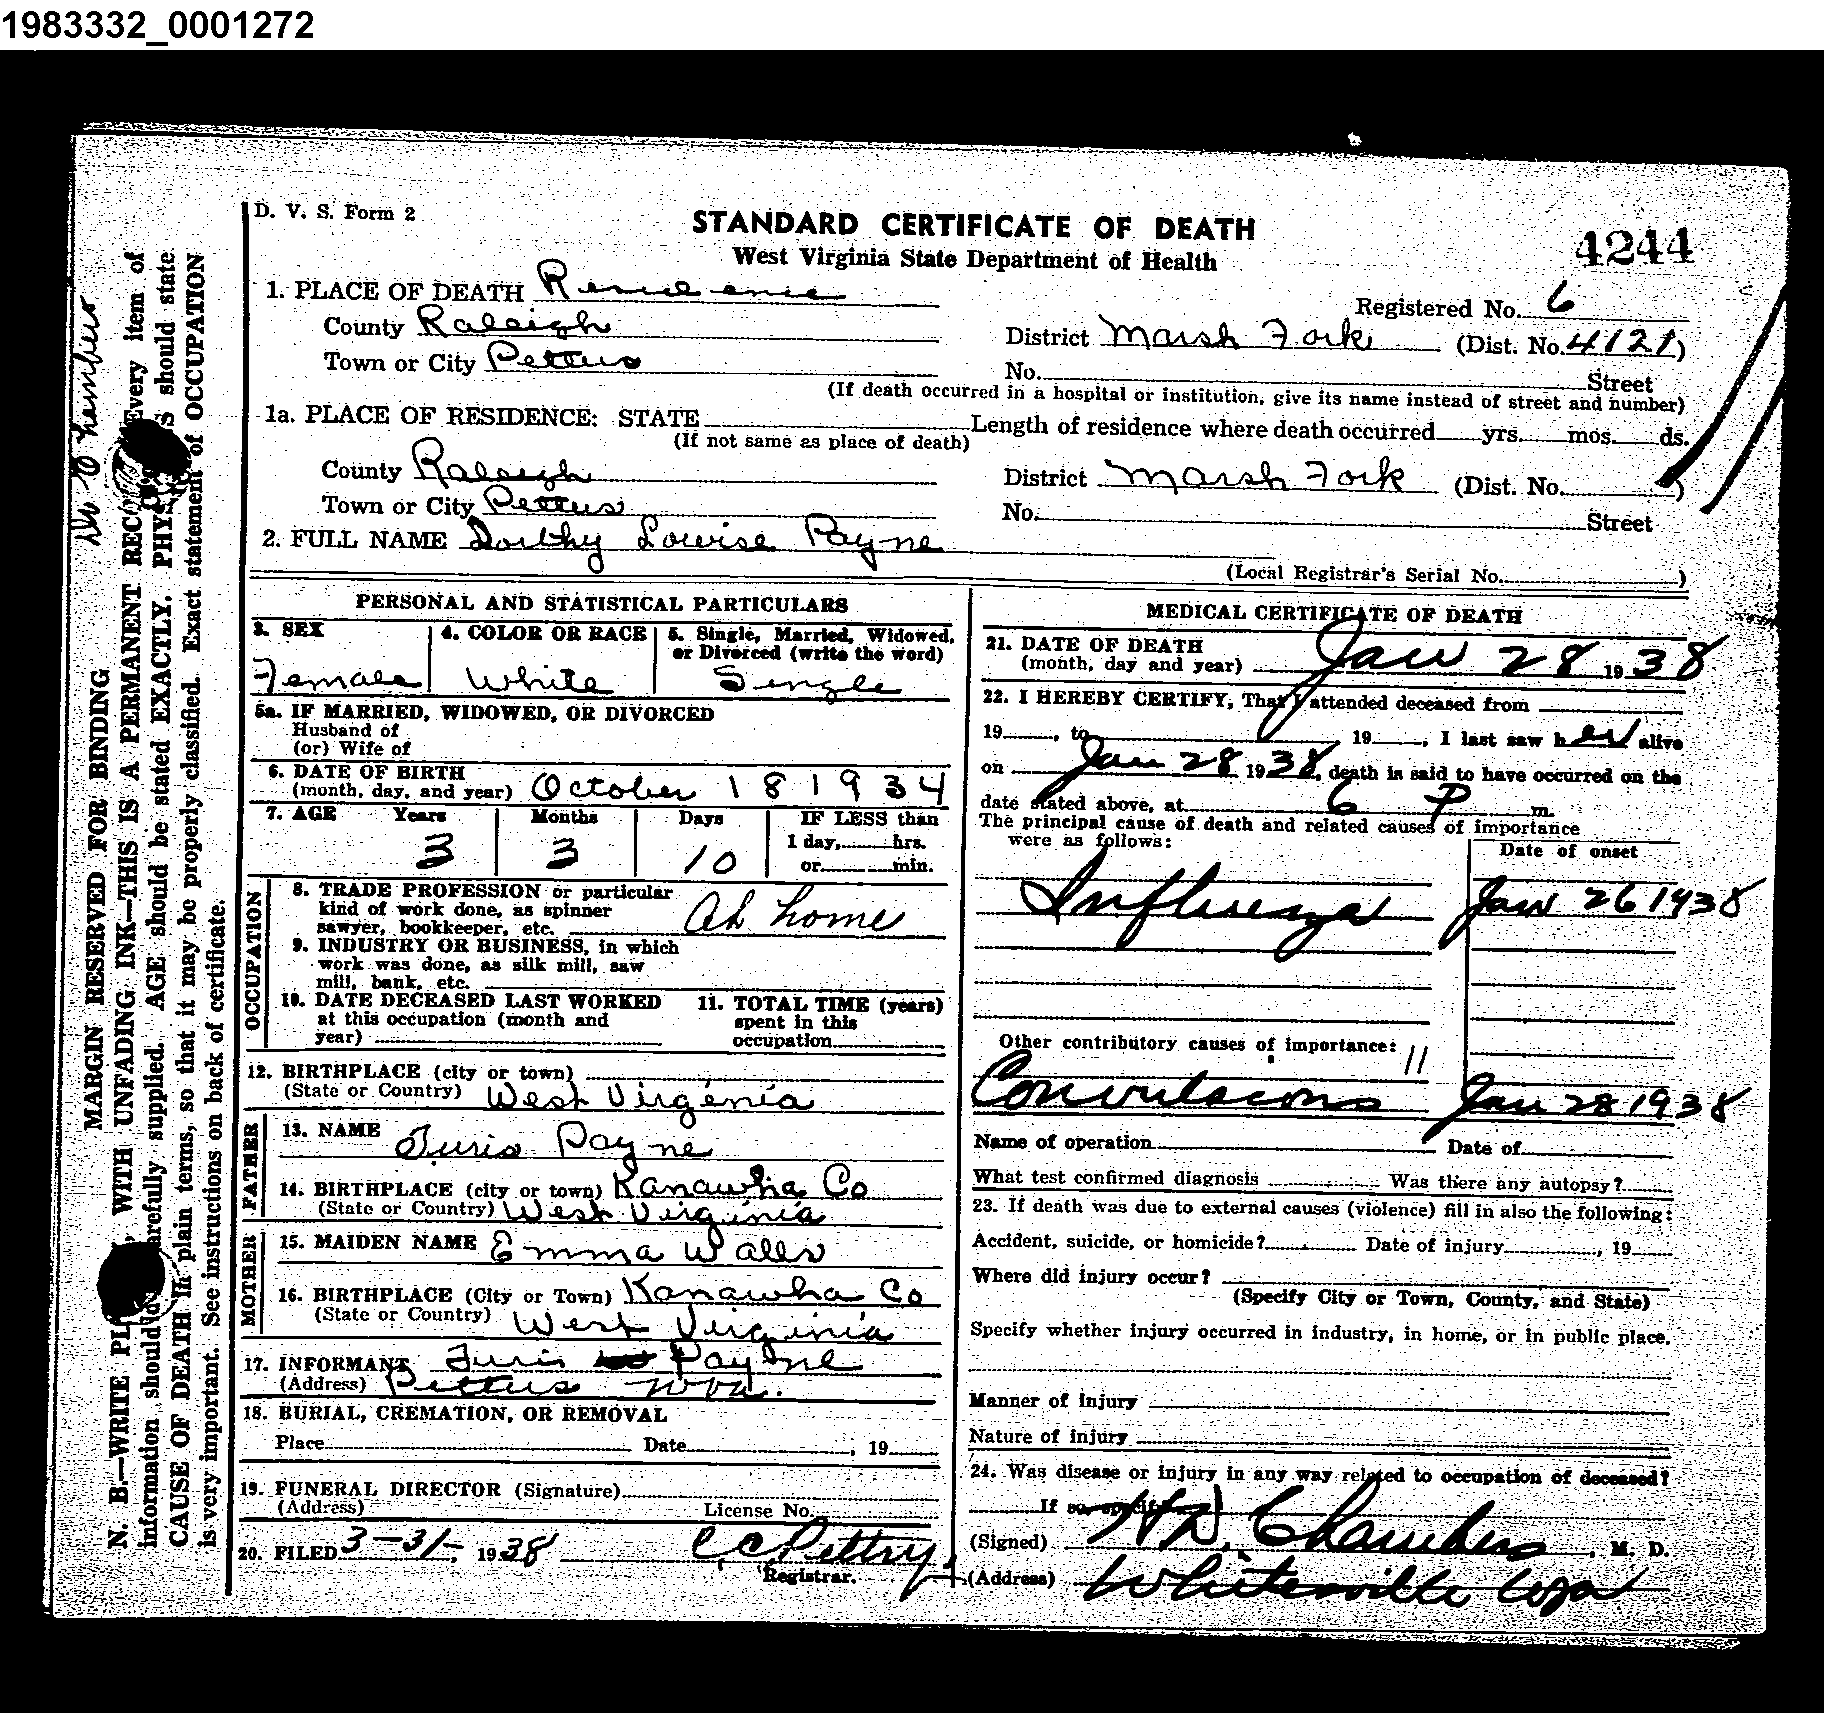 1983332_0001272
D. V. S. Form 2
STANDARD CERTIFICATE OF DEATH
West Virginia State Department of Health
4244
1. PLACE OF DEATH Residence
Registered No. 6
County Raleigh
District Marsh Fork (Dist. No. 4121)
Town or City Pettus
No. Street
(If death occurred in a hospital or institution, give its name instead of street and number)
1a. PLACE OF RESIDENCE: STATE Length of residence where death occurred yrs. mos. ds.
(If not same as place of death)
County Raleigh
District Marsh Fork (Dist. No. )
Town or City Pettus
No. Street
2. FULL NAME Dorthy Lowise Payne
(Local Registrar's Serial No. )
PERSONAL AND STATISTICAL PARTICULARS
3. SEX
Female
4. COLOR OR RACE
White
5. Single, Married, Widowed,
or Divorced (write the word)
Single
5a. IF MARRIED, WIDOWED, OR DIVORCED
Husband of
(or) Wife of
6. DATE OF BIRTH
(month, day, and year) October 18 1934
7. AGE Years Months Days IF LESS than
1 day, hrs.
3 3 10 or min.
OCCUPATION
8. TRADE PROFESSION or particular
kind of work done, as spinner
sawyer, bookkeeper, etc. At home
9. INDUSTRY OR BUSINESS, in which
work was done, as silk mill, saw
mill, bank, etc.
10. DATE DECEASED LAST WORKED
at this occupation (month and
year)
11. TOTAL TIME (years)
spent in this
occupation
12. BIRTHPLACE (city or town)
(State or Country) West Virginia
FATHER
13. NAME Turis Payne
14. BIRTHPLACE (city or town) Kanawha Co
(State or Country) West Virginia
MOTHER
15. MAIDEN NAME Emma Walls
16. BIRTHPLACE (City or Town) Kanawha Co
(State or Country) West Virginia
17. INFORMANT Turis Payne
(Address) Pettus W Va.
18. BURIAL, CREMATION, OR REMOVAL
Place Date , 19
19. FUNERAL DIRECTOR (Signature)
(Address) License No.
20. FILED 3-31-, 1938 C C Pettry
Registrar.
MEDICAL CERTIFICATE OF DEATH
21. DATE OF DEATH
(month, day and year) Jan 28 1938
22. I HEREBY CERTIFY, That I attended deceased from
19 , to , 19 , I last saw her alive
on Jan 28, 1938, death is said to have occurred on the
date stated above, at 6 P m.
The principal cause of death and related causes of importance
were as follows:
Date of onset
Influenza Jan 26 1938
Other contributory causes of importance: 11
Convulsions Jan 28 1938
Name of operation Date of
What test confirmed diagnosis Was there any autopsy?
23. If death was due to external causes (violence) fill in also the following:
Accident, suicide, or homicide? Date of injury , 19
Where did injury occur?
(Specify City or Town, County, and State)
Specify whether injury occurred in industry, in home, or in public place.
Manner of injury
Nature of injury
24. Was disease or injury in any way related to occupation of deceased?
If so, specify
(Signed) H D. Chambers, M. D.
(Address) Whitesville W Va
Dr Chambers
MARGIN RESERVED FOR BINDING
N. B.—WRITE , WITH UNFADING INK—THIS IS A PERMANENT Every item of
information should carefully supplied. AGE should be stated EXACTLY. should state
CAUSE OF DEATH in plain terms, so that it may be properly classified. Exact statement of OCCUPATION
is very important. See instructions on back of certificate.